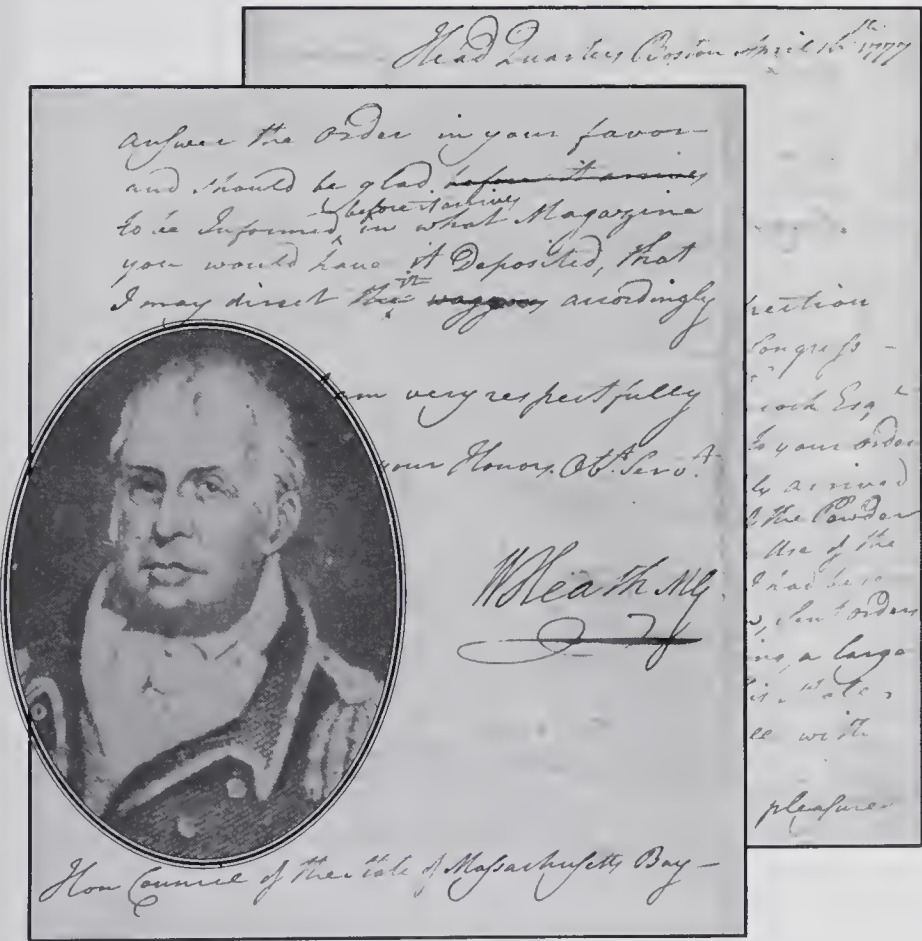 Head Quarters Boston April 16th 1777
answer the order in your favor—
and should be glad before it arrives
before it arrives
to be Informed in what Magazine
you would have it Deposited, that
it
I may direct the waggons accordingly
am very respectfully
your Honors Obt. Servt.
W Heath MG
Hon Council of the State of Massachusetts Bay—
rection
Congress—
cock Esqr
to your order
ly arrived
the Powder
Use of the
I had be
sent orders
ing, a large
ee with
pleasure